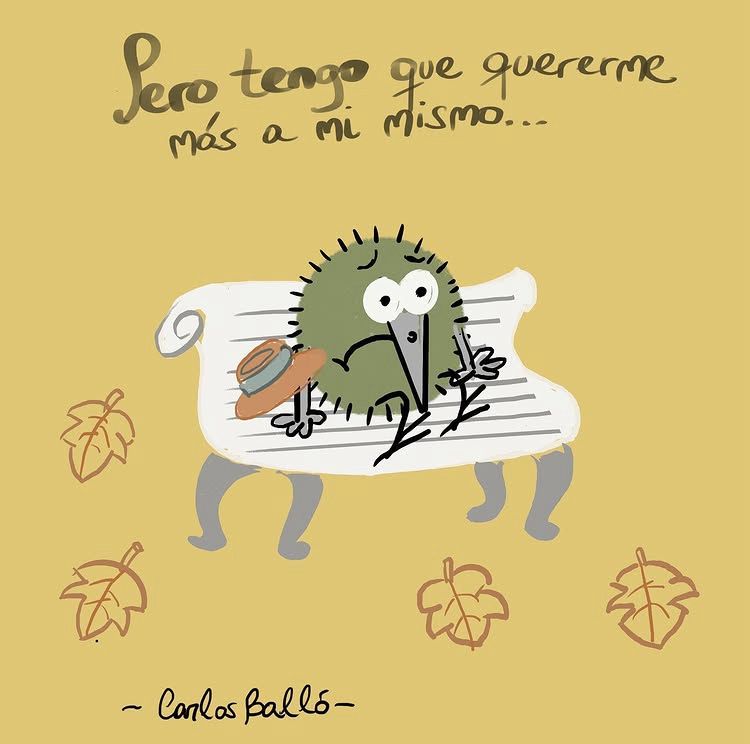 Pero tengo que quererme
más a mi mismo...
~ Carlos Balló -